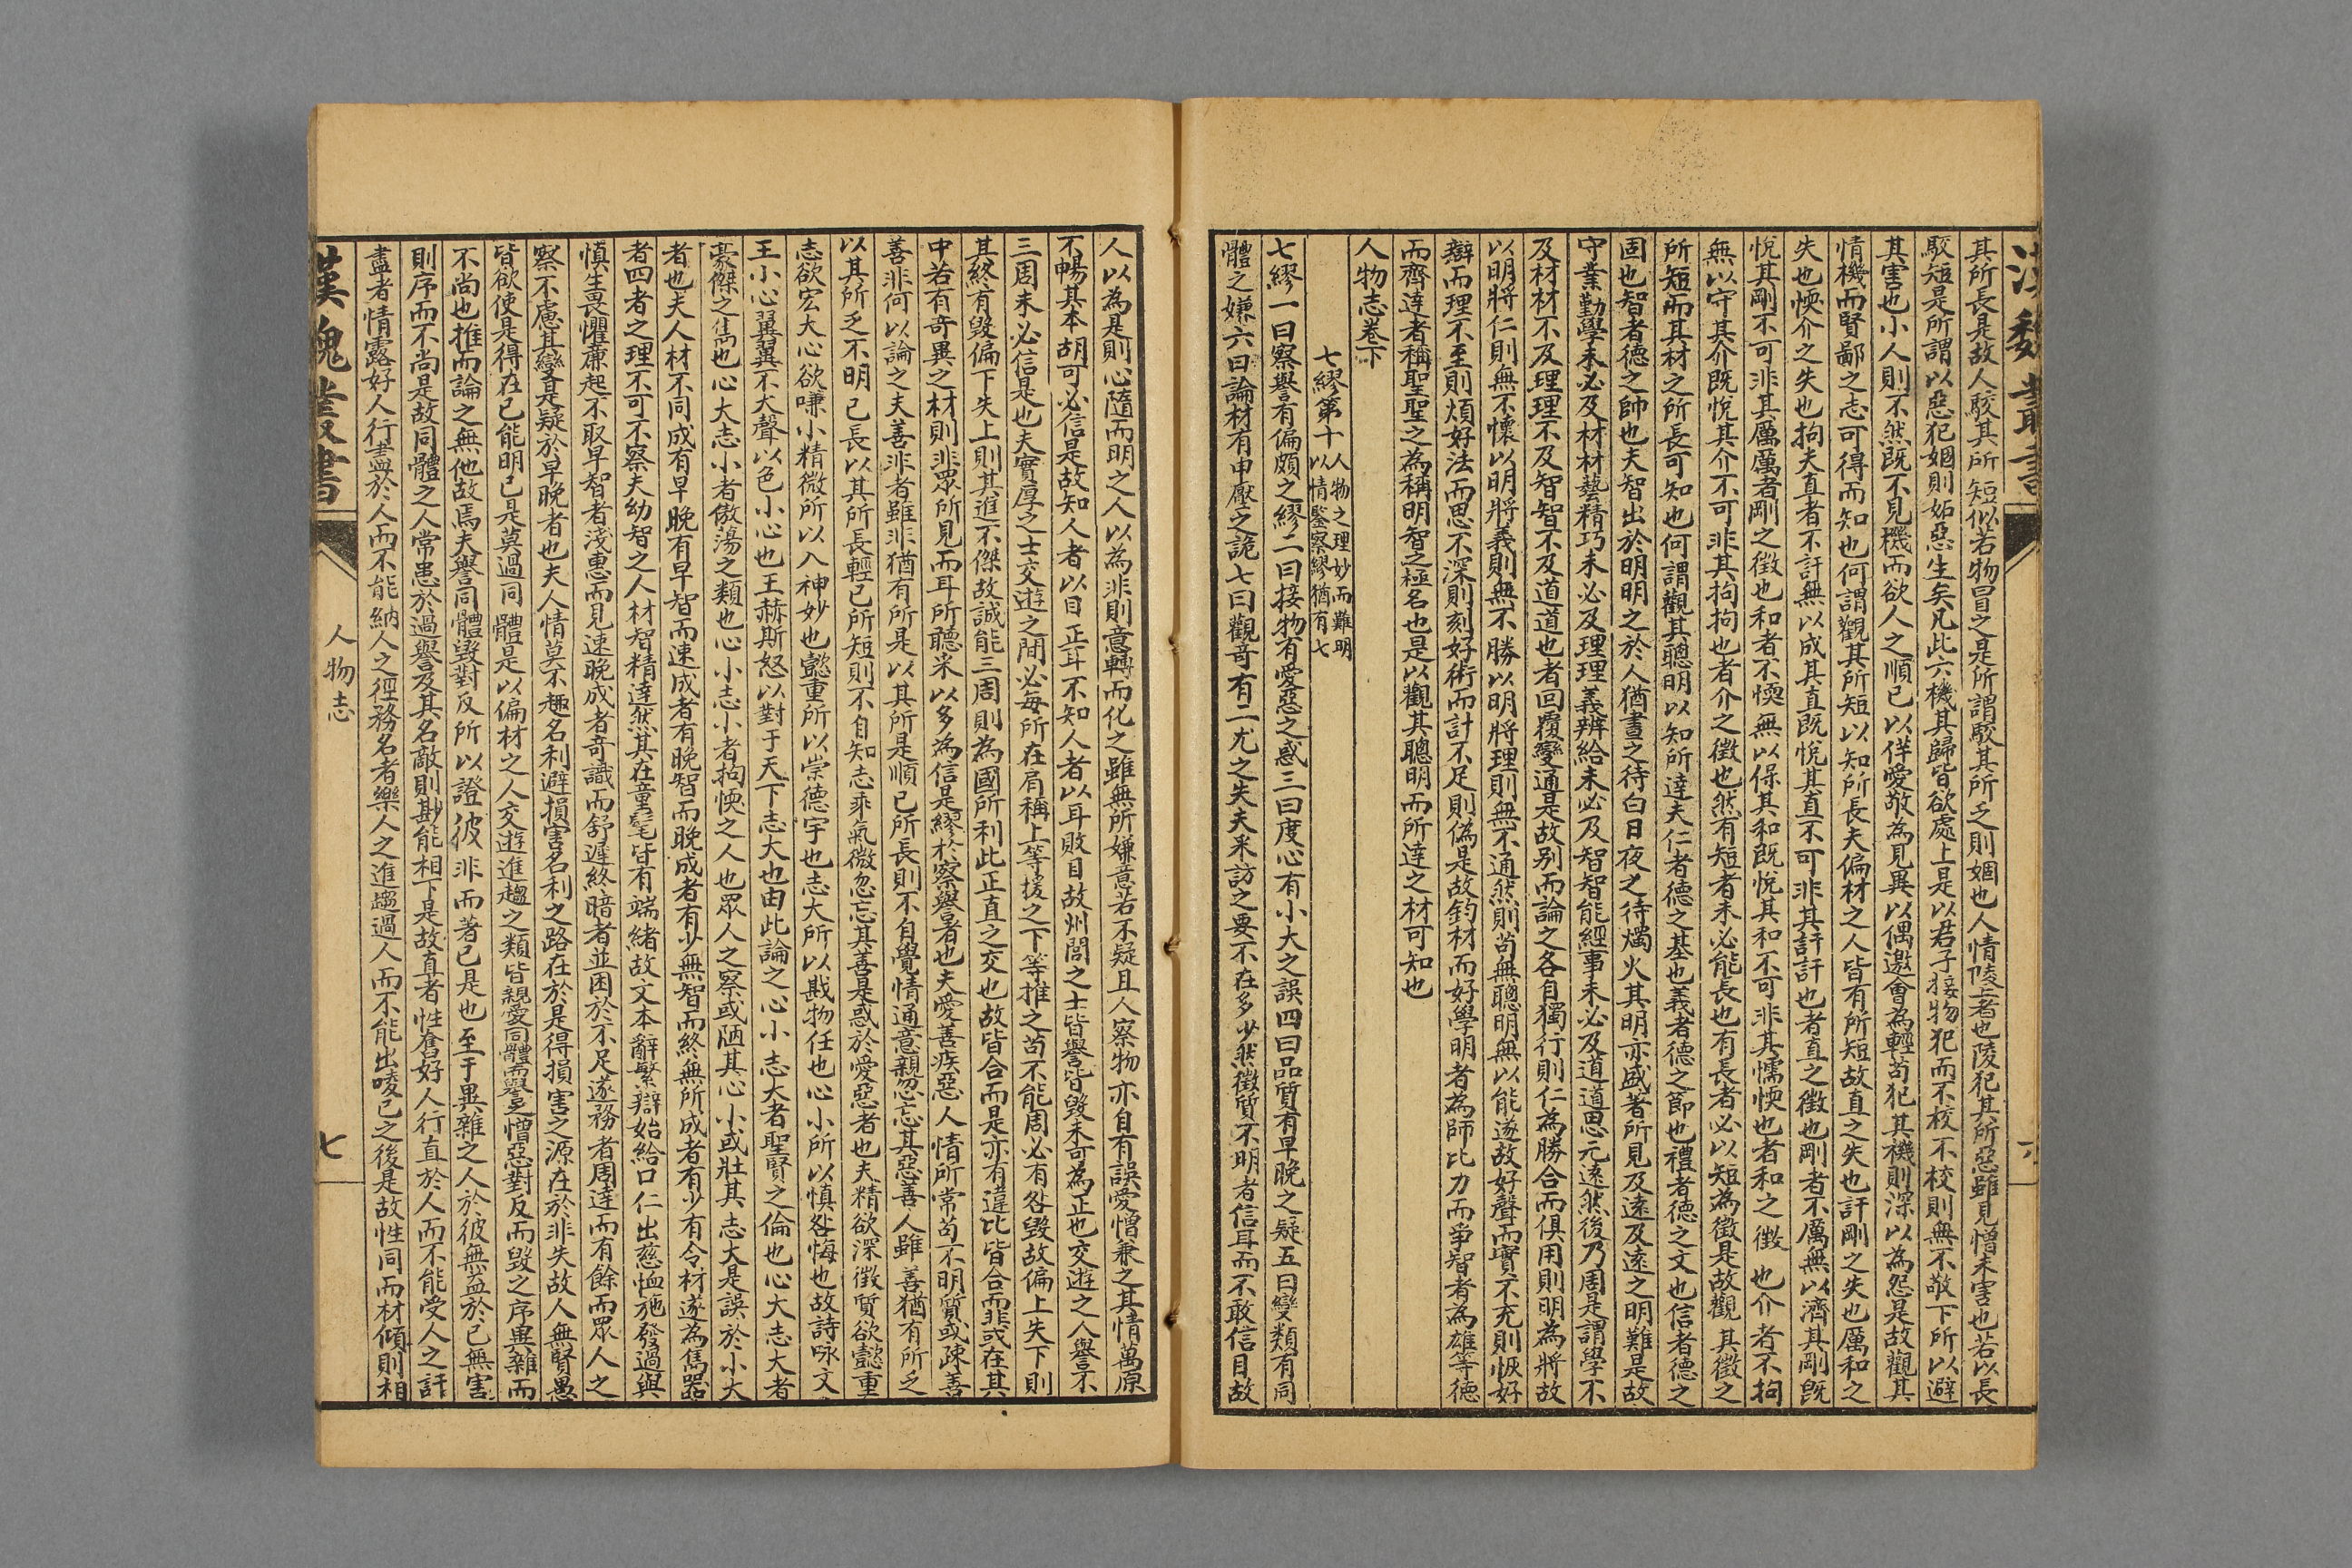 漢魏叢書
其所長是故人駮其所短似若物冒之是所謂駮其所乏則姻也人情陵上者也陵犯其所惡雖見憎未害也若以長
駮短是所謂以惡犯姻則妬惡生矣凡此六機其歸皆欲處上是以君子接物犯而不校不校則無不敬下所以避
其害也小人則不然既不見機而欲人之順已以佯愛敬為見異以偶邀會為輕苟犯其機則深以為怨是故觀其
情機而賢鄙之志可得而知也何謂觀其所短以知所長夫偏材之人皆有所短故直之失也訐剛之失也厲和之
失也愞介之失也拘夫直者不訐無以成其直既悅其直不可非其訐訐也者直之徵也剛者不厲無以濟其剛既
悅其剛不可非其厲厲者剛之徵也和者不愞無以保其和既悅其和不可非其懦愞也者和之徵也介者不拘
無以守其介既悅其介不可非其拘拘也者介之徵也然有短者未必能長也有長者必以短為徵是故觀其徵之
所短而其材之所長可知也何謂觀其聰明以知所達夫仁者德之基也義者德之節也禮者德之文也信者德之
固也智者德之帥也夫智出於明明之於人猶晝之待白日夜之待燭火其明亦盛著所見及遠及遠之明難是故
守業勤學未必及材材藝精巧未必及理理義辨給未必及智智能經事未必及道道思元遠然後乃周是謂學不
及材材不及理理不及智智不及道道也者回覆變通是故別而論之各自獨行則仁為勝合而俱用則明為將故
以明將仁則無不懷以明將義則無不勝以明將理則無不通然則苟無聰明無以能遂故好聲而實不充則恢好
辯而理不至則煩好法而思不深則刻好術而計不足則偽是故鈞材而好學明者為師比力而爭智者為雄等德
而齊達者稱聖聖之為稱明智之極名也是以觀其聰明而所達之材可知也
人物志卷下
七繆第十 人物之理妙而難明
以情鑒察繆猶有七
七繆一曰察譽有偏頗之繆二曰接物有愛惡之惑三曰度心有小大之誤四曰品質有早晚之疑五曰變類有同
體之嫌六曰論材有申壓之詭七曰觀奇有二尤之失夫采訪之要不在多少然徵質不明者信耳而不敢信目故
人以為是則心隨而明之人以為非則意轉而化之雖無所嫌意若不疑且人察物亦自有誤愛憎兼之其情萬原
不暢其本胡可必信是故知人者以目正耳不知人者以耳敗目故州閭之士皆譽皆毀未可為正也交遊之人譽不
三周未必信是也夫實厚之士交遊之間必每所在肩稱上等援之下等推之苟不能周必有咎毀故偏上失下則
其終有毀偏下失上則其進不傑故誠能三周則為國所利此正直之交也故皆合而是亦有違比皆合而非或在其
中若有奇異之材則非眾所見而耳所聽采以多為信是繆於察譽者也夫愛善疾惡人情所常苟不明質或疎善
善非何以論之夫善非者雖非猶有所是以其所是順已所長則不自覺情通意親忽忘其惡善人雖善猶有所乏
以其所乏不明已長以其所長輕已所短則不自知志乖氣微忽忘其善是惑於愛惡者也夫精欲深徵質欲懿重
志欲宏大心欲嗛小精微所以入神妙也懿重所以崇德宇也志大所以戡物任也心小所以慎咎悔也故詩咏文
王小心翼翼不大聲以色小心也王赫斯怒以對于天下志大也由此論之心小志大者聖賢之倫也心大志大者
豪傑之雋也心大志小者傲蕩之類也心小志小者拘愞之人也眾人之察或陋其心小或壯其志大是誤於小大
者也夫人材不同成有早晚有早智而速成者有晚智而晚成者有少無智而終無所成者有少有令材遂為雋器
者四者之理不可不察夫幼智之人材智精達然其在童髦皆有端緒故文本辭繁辯始給口仁出慈恤施發過與
慎生畏懼廉起不取早智者淺惠而見速晚成者奇識而舒遲終暗者並困於不足遂務者周達而有餘而眾人之
察不慮其變是疑於早晚者也夫人情莫不趣名利避損害名利之路在於是得損害之源在於非失故人無賢愚
皆欲使是得在已能明已是莫過同體是以偏材之人交遊進趨之類皆親愛同體而譽之憎惡對反而毀之序異雜而
不尚也推而論之無他故焉夫譽同體毀對反所以證彼非而著已是也至于異雜之人於彼無益於已無害
則序而不尚是故同體之人常患於過譽及其名敵則尠能相下是故直者性奮好人行直於人而不能受人之訐
盡者情露好人行盡於人而不能納人之徑務名者樂人之進趨過人而不能出陵已之後是故性同而材傾則相
漢魏叢書
人物志
七